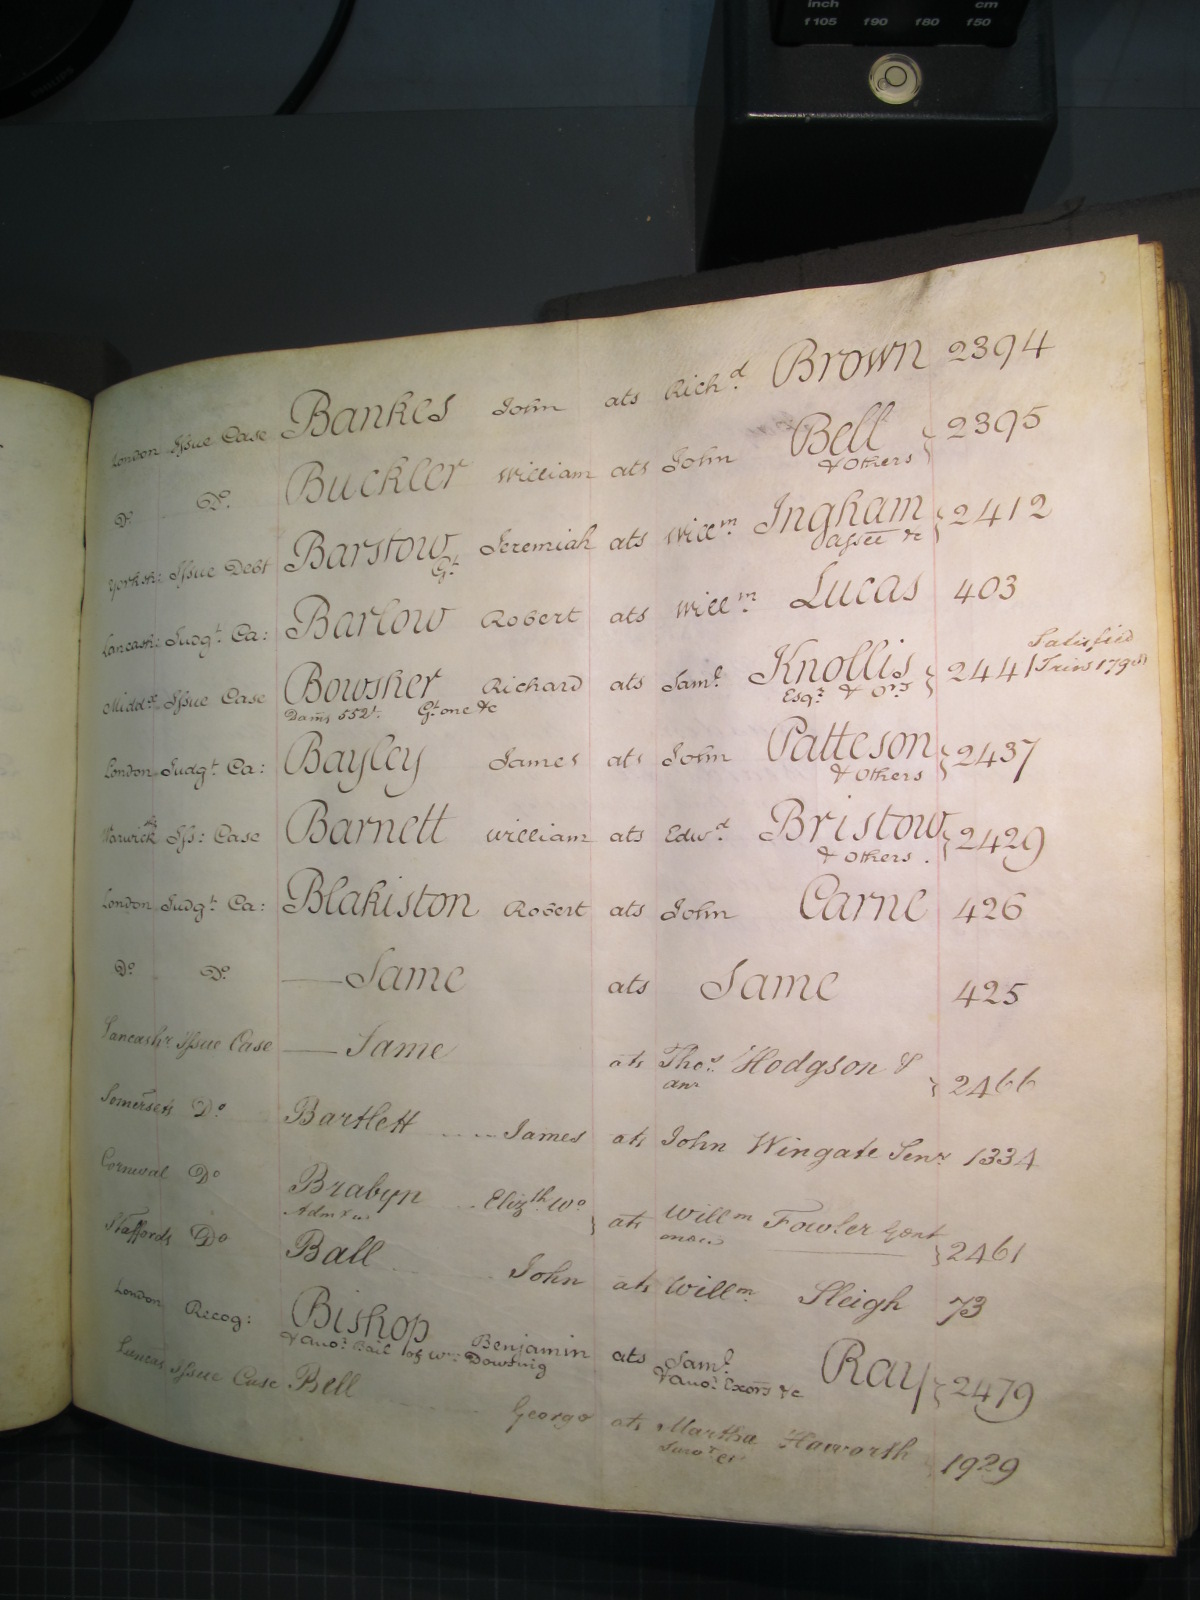 inch cm
f105 f90 f80 f50
PHILIPS
London Issue Case Bankes John ats Richd. Brown 2394
Do. Do. Buckler William ats John Bell 2395
& Others
Yorksh: Issue Debt Barstow Jeremiah ats Willm. Ingham 2412
Gt. Assee &c
Lancash: Judgt. Ca: Barlow Robert ats Willm. Lucas 403
Satisfied
Middx. Issue Case Bowsher Richard ats Saml. Knollis 2441 Trin:
Dams 552l. Gt. one &c Esqr. & Ors.
London Judgt. Ca: Bayley James ats John Patteson 2437
& Others
Warwick Iss: Case Barnett William ats Edwd. Bristow 2429
& Others.
London Judgt. Ca: Blakiston Robert ats John Carne 426
Do. Do. — Same ats Same 425
Lancashr. Issue Case — Same ats Thos. Hodgson & 2466
anr
Somersets Do. Bartlett .... James ats John Wingate Senr. 1334
Cornwal Do Brabyn .. Elizth. Wo. ats Willm Fowler Gent 2461
Admx
Staffords Do Ball John ats Willm. Sleigh 73
London Recog: Bishop Benjamin ats Saml. Ray 2479
& anor. Bail of Wm. Dowsing & anor. Exors &c
Lancas Issue Case Bell George ats Martha Haworth 1929